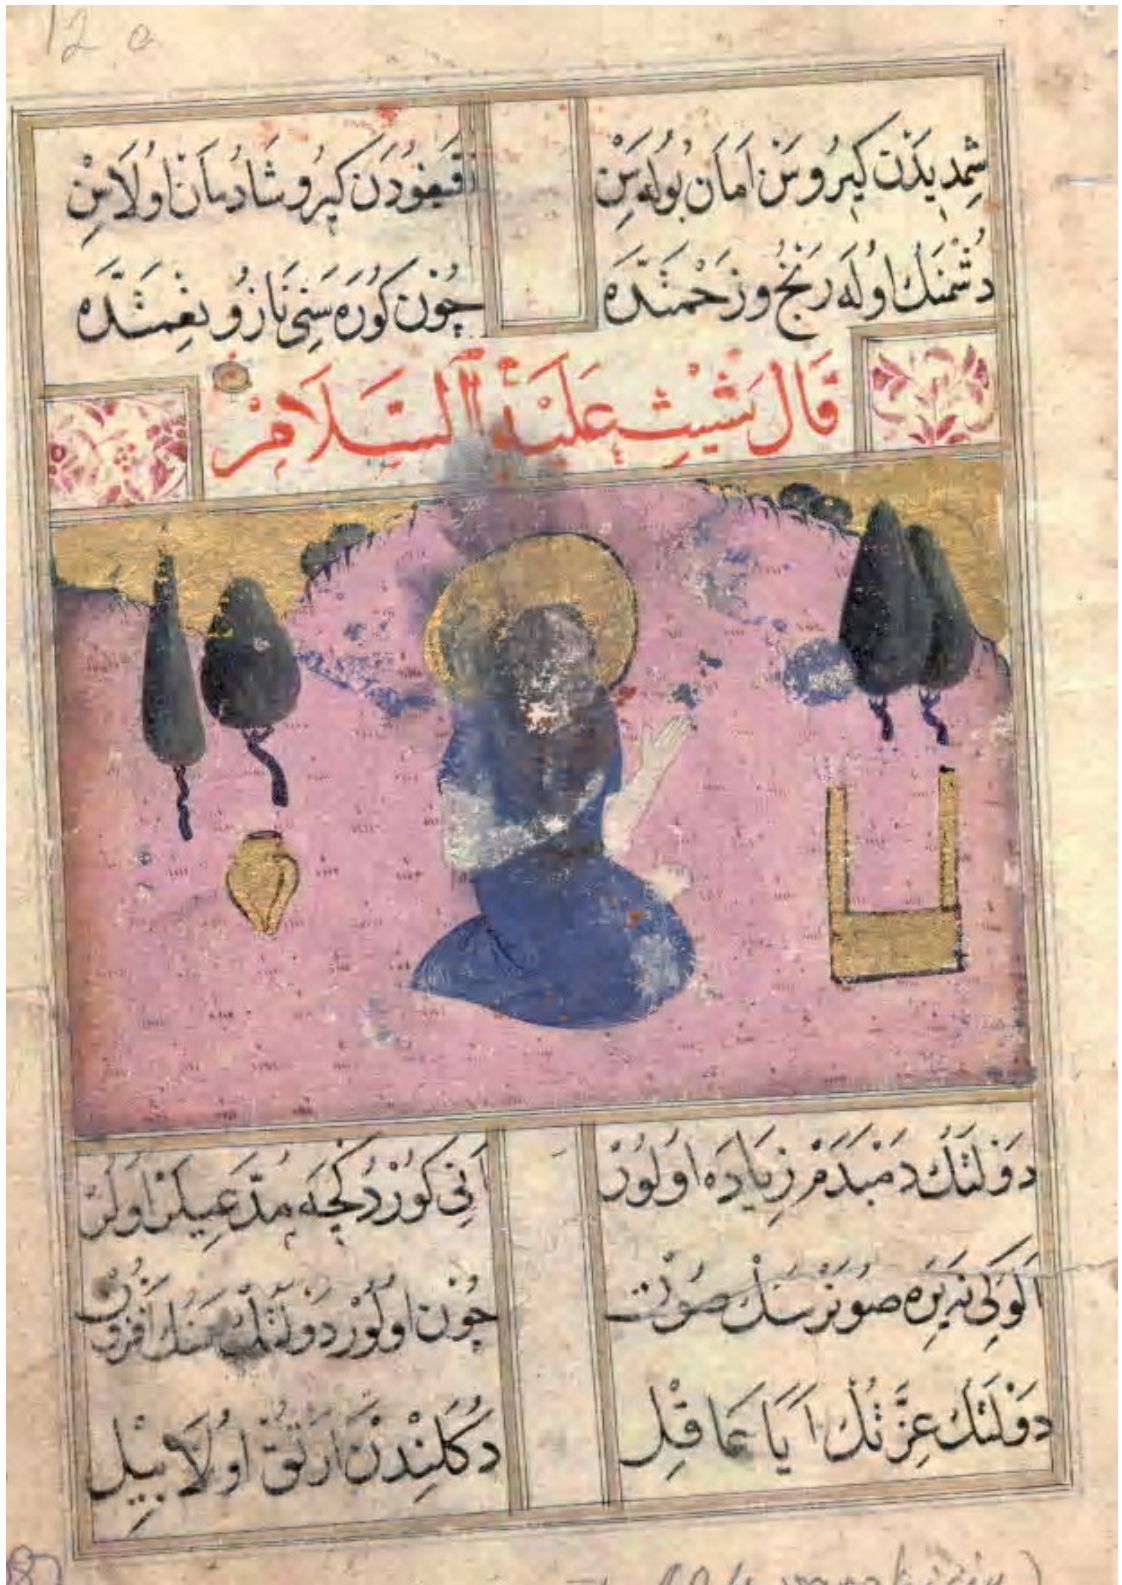 12 a
شِمْدِيدَنْ كِيرُو سَنْ اَمَان بُولَه سِنْ
قَيغُودَن كِيرُو شَادُمَانْ اوُلَاسِنْ
دُشْمَنِكْ اوُلَه رَنْجُ و زَحْمَتْدَه
چُونْ كُورَه سَنِى نَازُ و نِعْمَتْدَه
قَالَ شِيْثْ عَلَيْهِ السَّلَامْ
دَوْلَتُكْ دَمْبَدَمْ زِيَادَه اوُلُورْ
اَنِى كُورْدُكْجَه مُدَّعِيلَرْ اوُلُرْ
چُون اوُلُورْ دَوْلَتُكْ
دَوْلَتُكْ عِزَّتُكْ اَيَا عَاقِلْ
دُكَلِنْدَنْ اَرْتُقْ اوُلَا بِيْلْ